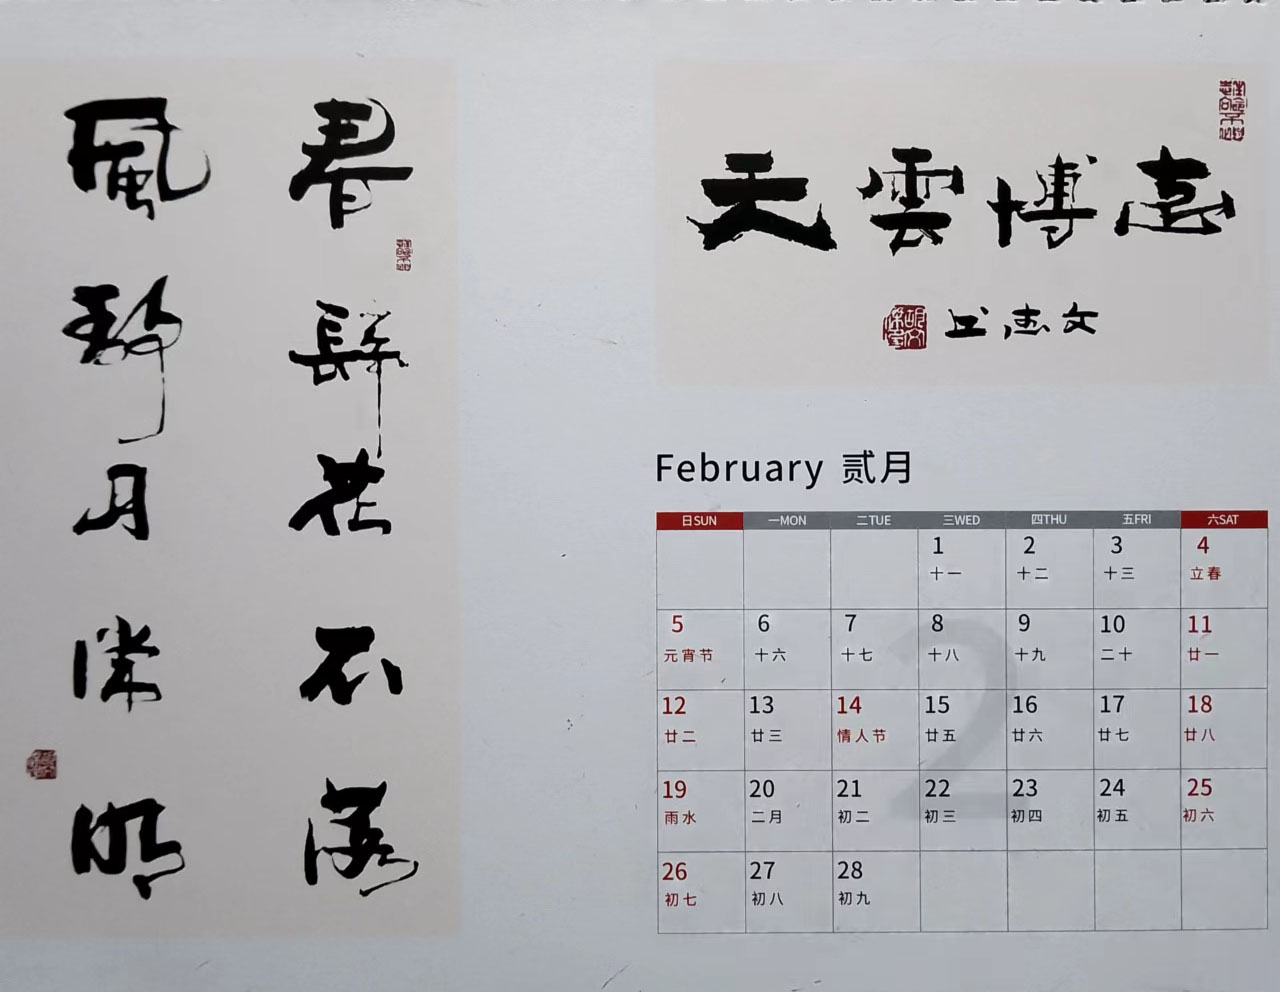 春歸花不落
風靜月常明
悳博雲天
文志书
February 贰月
日SUN 一MON 二TUE 三WED 四THU 五FRI 六SAT
1 2 3 4
十一 十二 十三 立春
5 6 7 8 9 10 11
元宵节 十六 十七 十八 十九 二十 廿一
12 13 14 15 16 17 18
廿二 廿三 情人节 廿五 廿六 廿七 廿八
19 20 21 22 23 24 25
雨水 二月 初二 初三 初四 初五 初六
26 27 28
初七 初八 初九
2